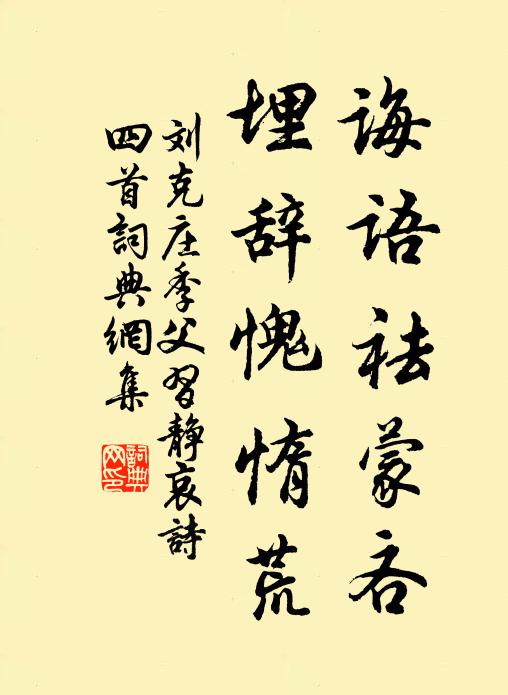 诲语祛蒙吝
埋辞愧惰荒
刘克庄季父习静哀詩
四首詞典網集
詞典網印